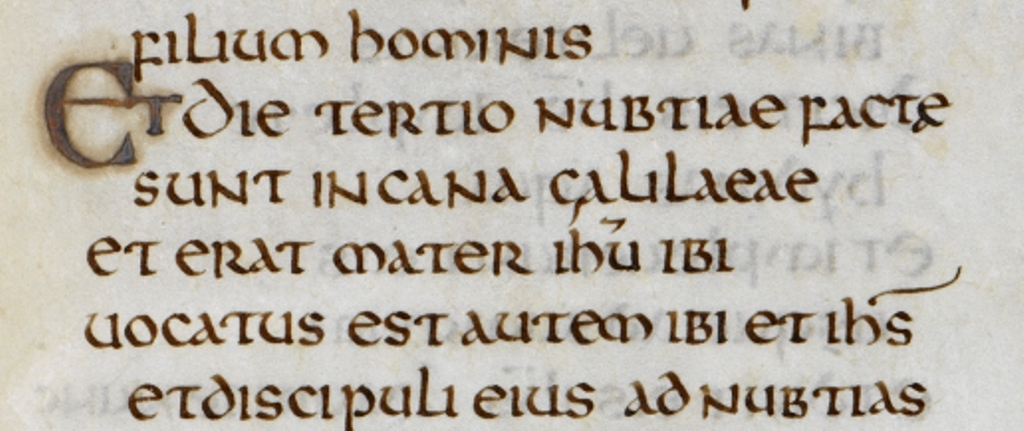 filium hominis
Et die tertio nubtiae factę
sunt in cana galilaeae
et erat mater ihū ibi
uocatus est autem ibi et ihs̄
et discipuli eius ad nubtias